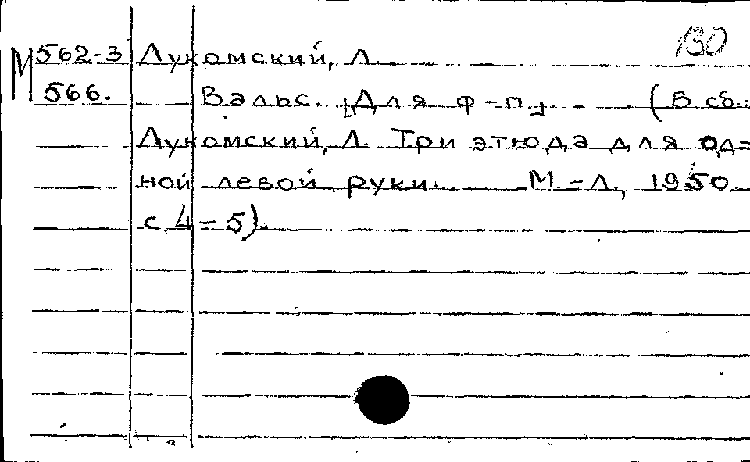 130
М 562-3 Лукомский, Л.
566. Вальс. [Для ф-п.] - (В сб.:
Лукомский, Л. Три этюда для од=
ной левой руки. М-Л, 1950
с 4-5).